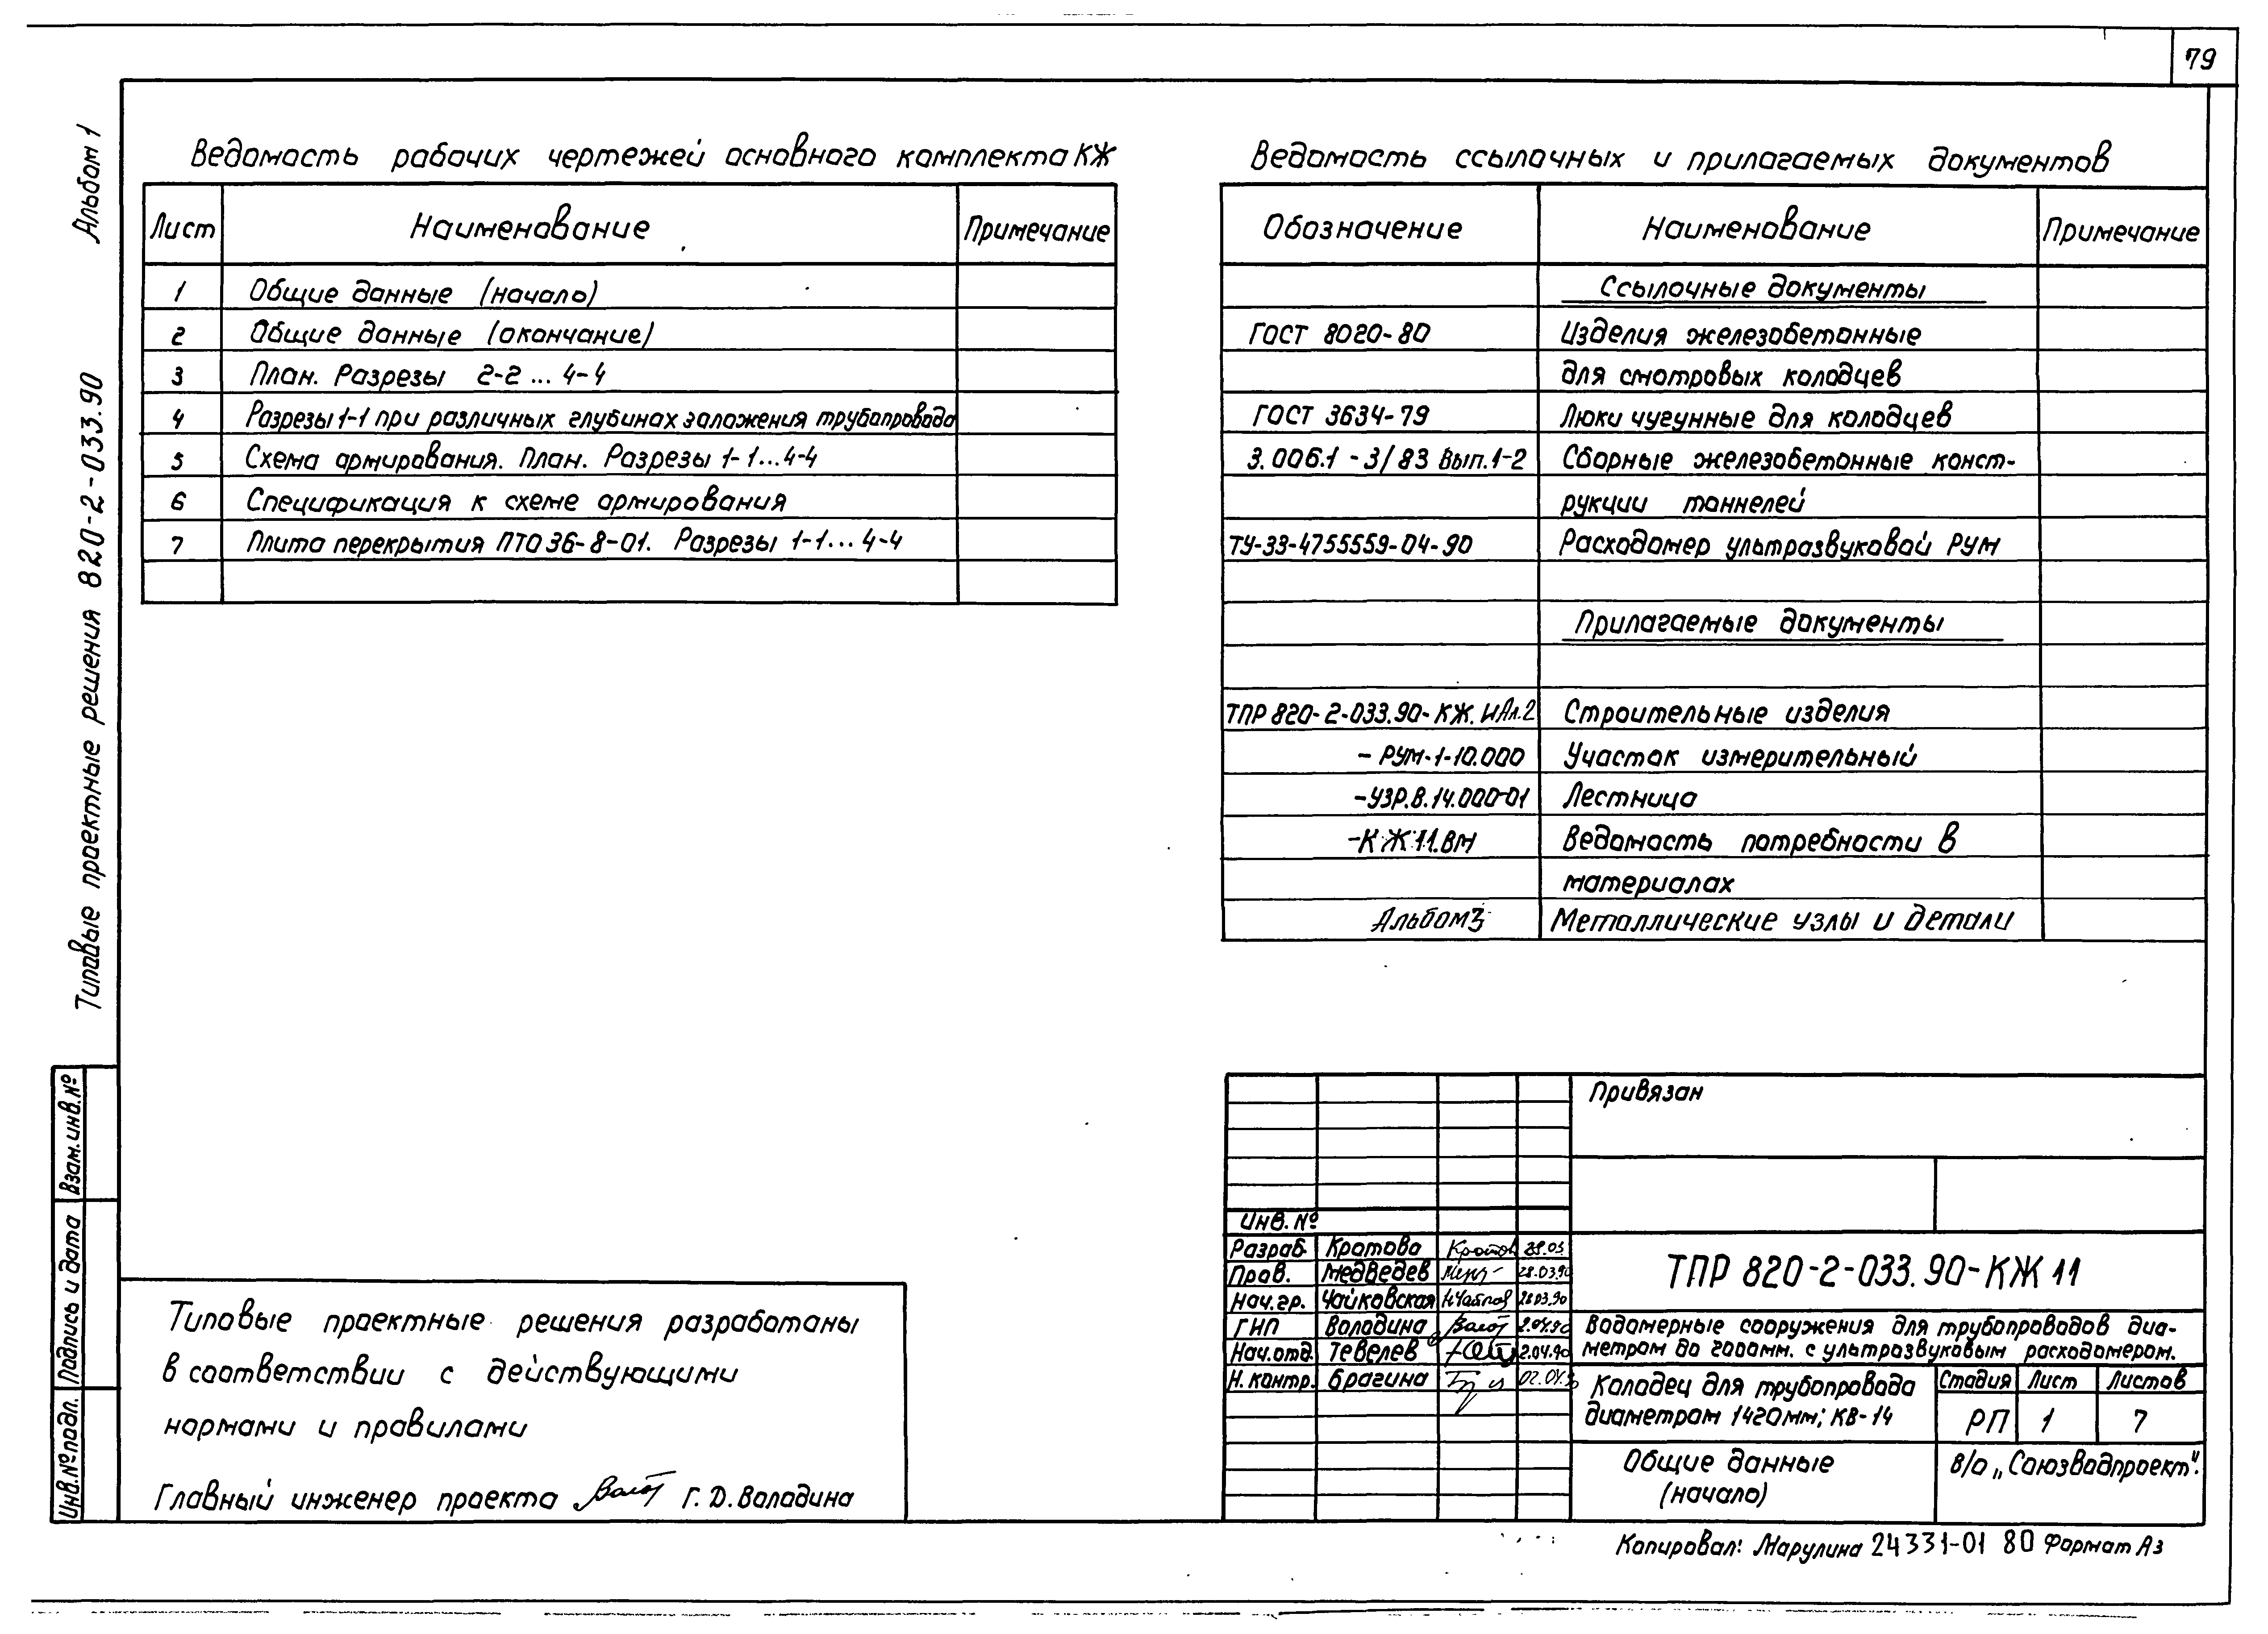 79
Альбом 1
Типовые проектные решения 820-2-033.90
Ведомость рабочих чертежей основного комплекта КЖ
Лист Наименование Примечание
1 Общие данные (начало)
2 Общие данные (окончание)
3 План. Разрезы 2-2 ... 4-4
4 Разрезы 1-1 при различных глубинах заложения трубопровода
5 Схема армирования. План. Разрезы 1-1...4-4
6 Спецификация к схеме армирования
7 Плита перекрытия ПТО 36-8-01. Разрезы 1-1... 4-4
Ведомость ссылочных и прилагаемых документов
Обозначение Наименование Примечание
Ссылочные документы
ГОСТ 8020-80 Изделия железобетонные
для смотровых колодцев
ГОСТ 3634-79 Люки чугунные для колодцев
3.006.1-3/83 Вып.1-2 Сборные железобетонные конст-
рукции тоннелей
ТУ-33-4755559-04-90 Расходомер ультразвуковой РУМ
Прилагаемые документы
ТПР 820-2-033.90-КЖ.И Ал.2 Строительные изделия
- РУМ-1-10.000 Участок измерительный
-УЗР.В.14.000-01 Лестница
-КЖ 11.ВМ Ведомость потребности в
материалах
Альбом 3 Металлические узлы и детали
Взам.инв.№
Подпись и дата
Инв.№подл.
Типовые проектные решения разработаны
в соответствии с действующими
нормами и правилами
Главный инженер проекта Г. Д. Володина
Привязан
Инв. №
Разраб. Кротова 28.03.
Пров. Медведев 28.03.90
Нач.гр. Чайковская 28.03.90
ГИП Володина 2.04.90
Нач.отд. Тевелев 2.04.90
Н. контр. Брагина 02.04.90
ТПР 820-2-033.90-КЖ 11
Водомерные сооружения для трубопроводов диа-
метром до 2000мм. с ультразвуковым расходомером.
Колодец для трубопровода
диаметром 1420мм; КВ-14
Стадия Лист Листов
РП 1 7
Общие данные
(начало)
В/о „Союзводпроект".
Копировал: Марулина 24331-01 80 Формат А3